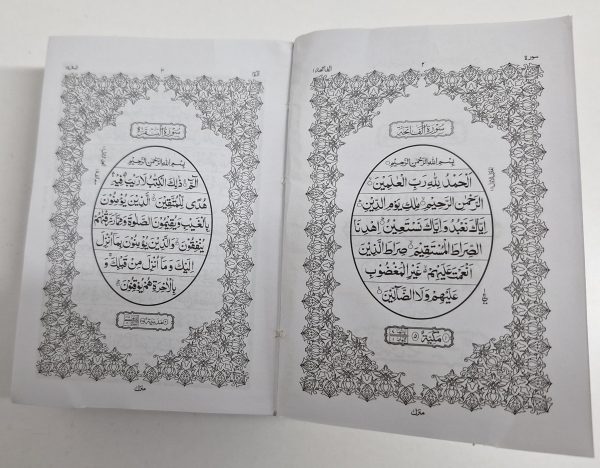 ٢
سُوْرَةُ الْفَاتِحَةِ
بِسْمِ اللهِ الرَّحْمٰنِ الرَّحِيْمِ
اَلْحَمْدُ لِلّٰهِ رَبِّ الْعٰلَمِيْنَ
الرَّحْمٰنِ الرَّحِيْمِ مٰلِكِ يَوْمِ الدِّيْنِ
اِيَّاكَ نَعْبُدُ وَاِيَّاكَ نَسْتَعِيْنُ اِهْدِنَا
الصِّرَاطَ الْمُسْتَقِيْمَ صِرَاطَ الَّذِيْنَ
اَنْعَمْتَ عَلَيْهِمْ غَيْرِ الْمَغْضُوْبِ
عَلَيْهِمْ وَلَا الضَّآلِّيْنَ
مَكِّيَّةٌ ٥
منزل
٣
سُوْرَةُ الْبَقَرَةِ
بِسْمِ اللهِ الرَّحْمٰنِ الرَّحِيْمِ
الٓمّٓ ذٰلِكَ الْكِتٰبُ لَا رَيْبَ فِيْهِ
هُدًى لِّلْمُتَّقِيْنَ الَّذِيْنَ يُؤْمِنُوْنَ
بِالْغَيْبِ وَيُقِيْمُوْنَ الصَّلٰوةَ وَمِمَّا رَزَقْنٰهُمْ
يُنْفِقُوْنَ وَالَّذِيْنَ يُؤْمِنُوْنَ بِمَآ اُنْزِلَ
اِلَيْكَ وَمَآ اُنْزِلَ مِنْ قَبْلِكَ وَ
بِالْاٰخِرَةِ هُمْ يُوْقِنُوْنَ
مدنية
منزل